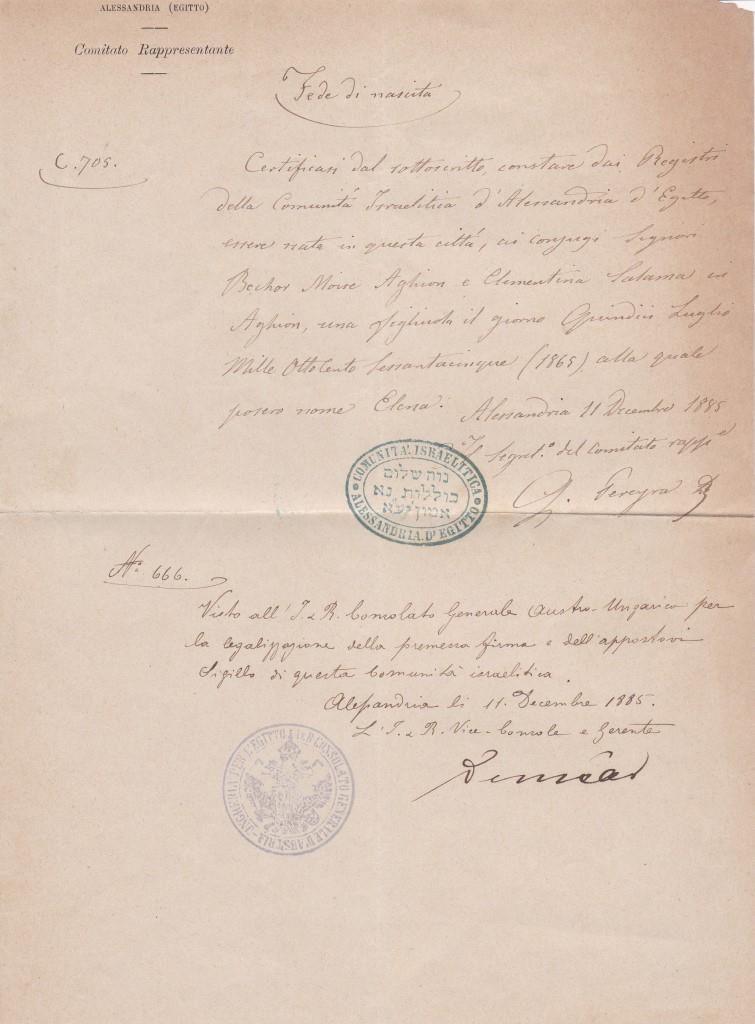 ALESSANDRIA (EGITTO)
Comitato Rappresentante
Fede di nascita
C. 705.
Certificasi dal sottoscritto, constare dai Registri
della Comunità Israelitica d'Alessandria d'Egitto,
essere nata in questa città, ai conjugi Signori
Bechor Moise Aghion e Clementina Salama in
Aghion, una figliuola il giorno Quindici Luglio
Mille Ottocento Sessantacinque (1865) alla quale
posero nome Elena.
Alessandria 11 Decembre 1885
Il Segret.º del Comitato rapp.e
G. Pereyra
COMUNITÀ ISRAELITICA
נוה שלום
כוללות נא
אמון יע״א
ALESSANDRIA D'EGITTO
No. 666.
Visto all' I. & R. Consolato Generale Austro-Ungarico per
la legalizzazione della premessa firma e dell'appostovi
Sigillo di questa Comunità israelitica.
Alessandria li 11. Decembre 1885.
L'I. & R. Vice-Console e Gerente
I. R. CONSOLATO GENERALE D'AUSTRIA-UNGHERIA PER L'EGITTO